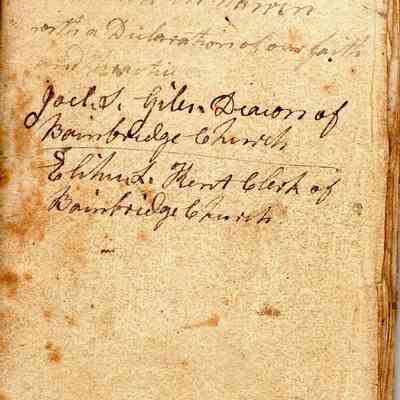 with a Declaration of our faith
and practic
Joel. S. Giles. Deacon of
Bainbridge Church
Elihu. Kent Clerk of
Bainbridge Church